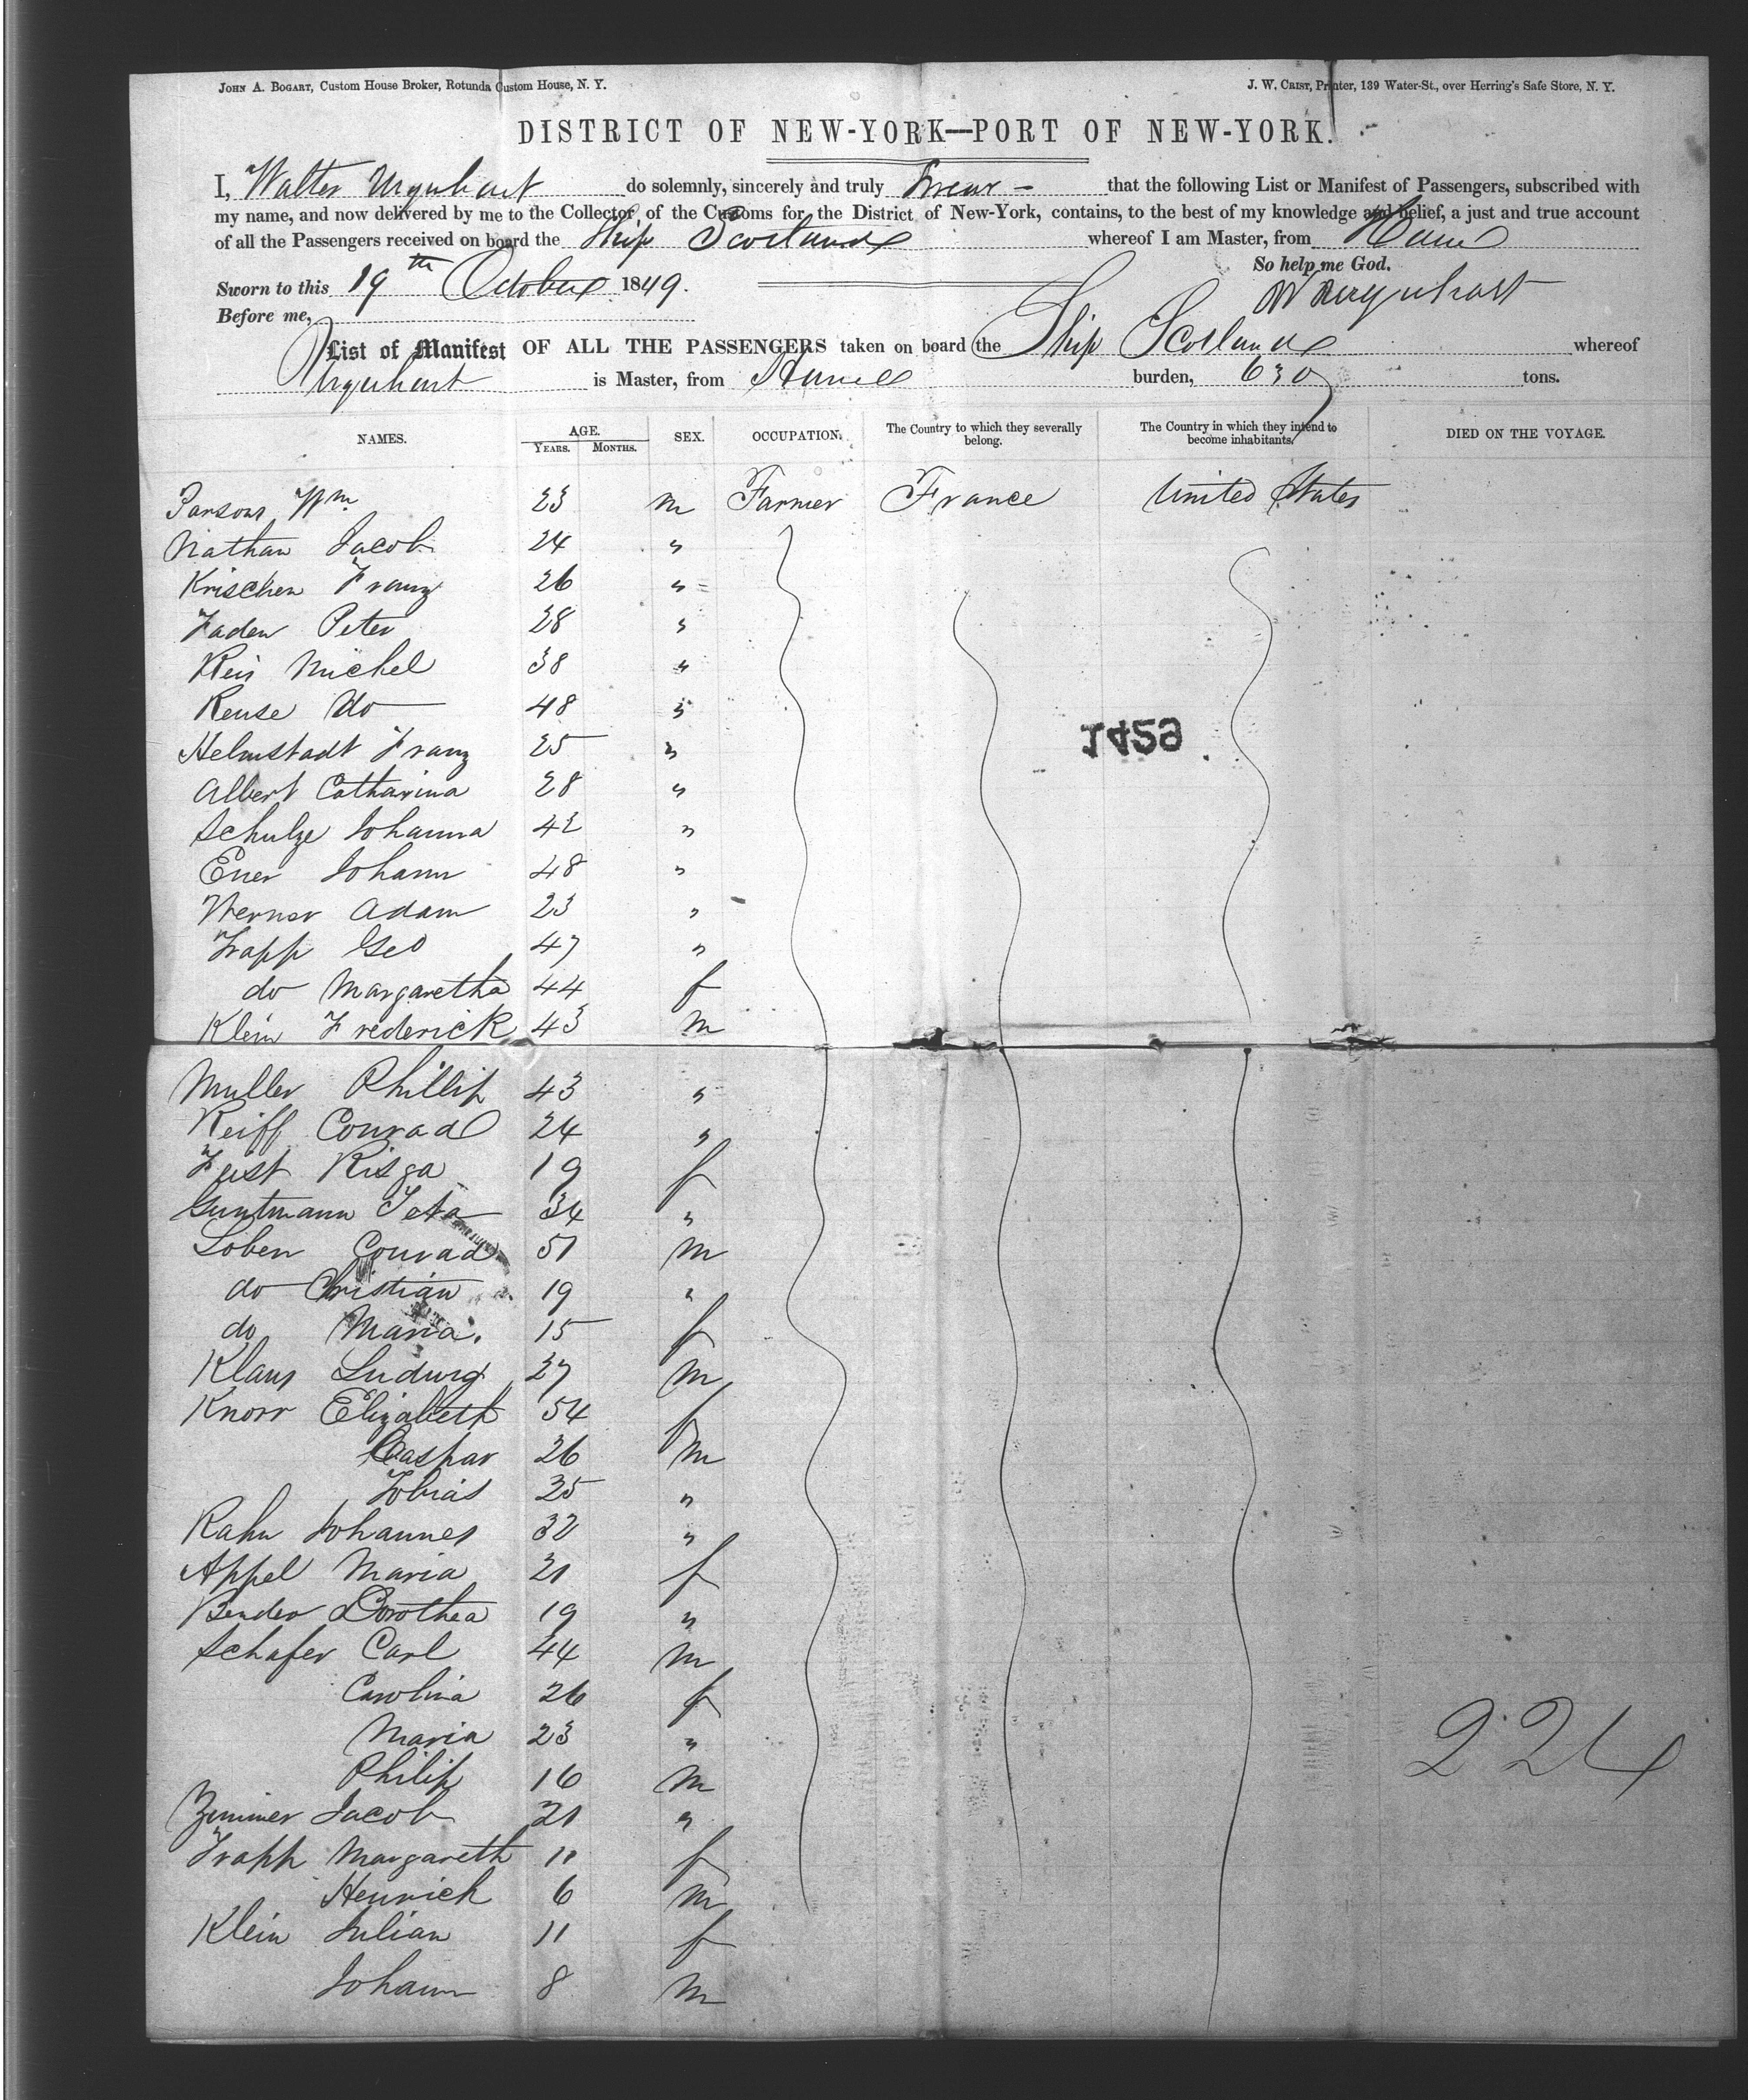 JOHN A. BOGART, Custom House Broker, Rotunda Custom House, N. Y. J. W. CRIST, Printer, 139 Water-St., over Herring's Safe Store, N. Y.
DISTRICT OF NEW-YORK—PORT OF NEW-YORK.
I, Walter Urquhart do solemnly, sincerely and truly Swear - that the following List or Manifest of Passengers, subscribed with
my name, and now delivered by me to the Collector of the Customs for the District of New-York, contains, to the best of my knowledge and belief, a just and true account
of all the Passengers received on board the Ship Scotland whereof I am Master, from Havre
So help me God.
Sworn to this 19th October 1849. W Urquhart
Before me,
List of Manifest OF ALL THE PASSENGERS taken on board the Ship Scotland whereof
Urquhart is Master, from Havre burden, 630 tons.
NAMES. AGE. SEX. OCCUPATION. The Country to which they severally belong. The Country in which they intend to become inhabitants. DIED ON THE VOYAGE.
YEARS. MONTHS.
Parsons Wm 23 m Farmer France United States
Nathan Jacob 24 "
Krischen Franz 26 "
Faden Peter 28 "
Reis Michel 38 "
Reuse do 48 "
Helmstadt Franz 25 "
Albert Catharina 28 "
Schulze Johanna 42 "
Ener Johann 48 "
Werner Adam 23 "
Trapp Geo 47 "
do Margaretha 44 f
Klein Frederick 43 m
Muller Phillip 43 "
Reiff Conrad 24 "
Fust 19 f
Guntmann 34 "
Loben Conrad 51 m
do Christian 19 "
do Maria. 15 f
Klaus Ludwig 27 m
Knorr Elizabeth 54 f
Caspar 26 m
Tobias 25 "
Rahn Johannes 32 "
Appel Maria 21 f
Bender Dorothea 19 "
Schafer Carl 44 m
Carolina 26 f
Maria 23 "
Philip 16 m
Zimmer Jacob 21 "
Trapp Margareth 11 f
Henrich 6 m
Klein Julian 11 f
Johann 8 m
1459
224